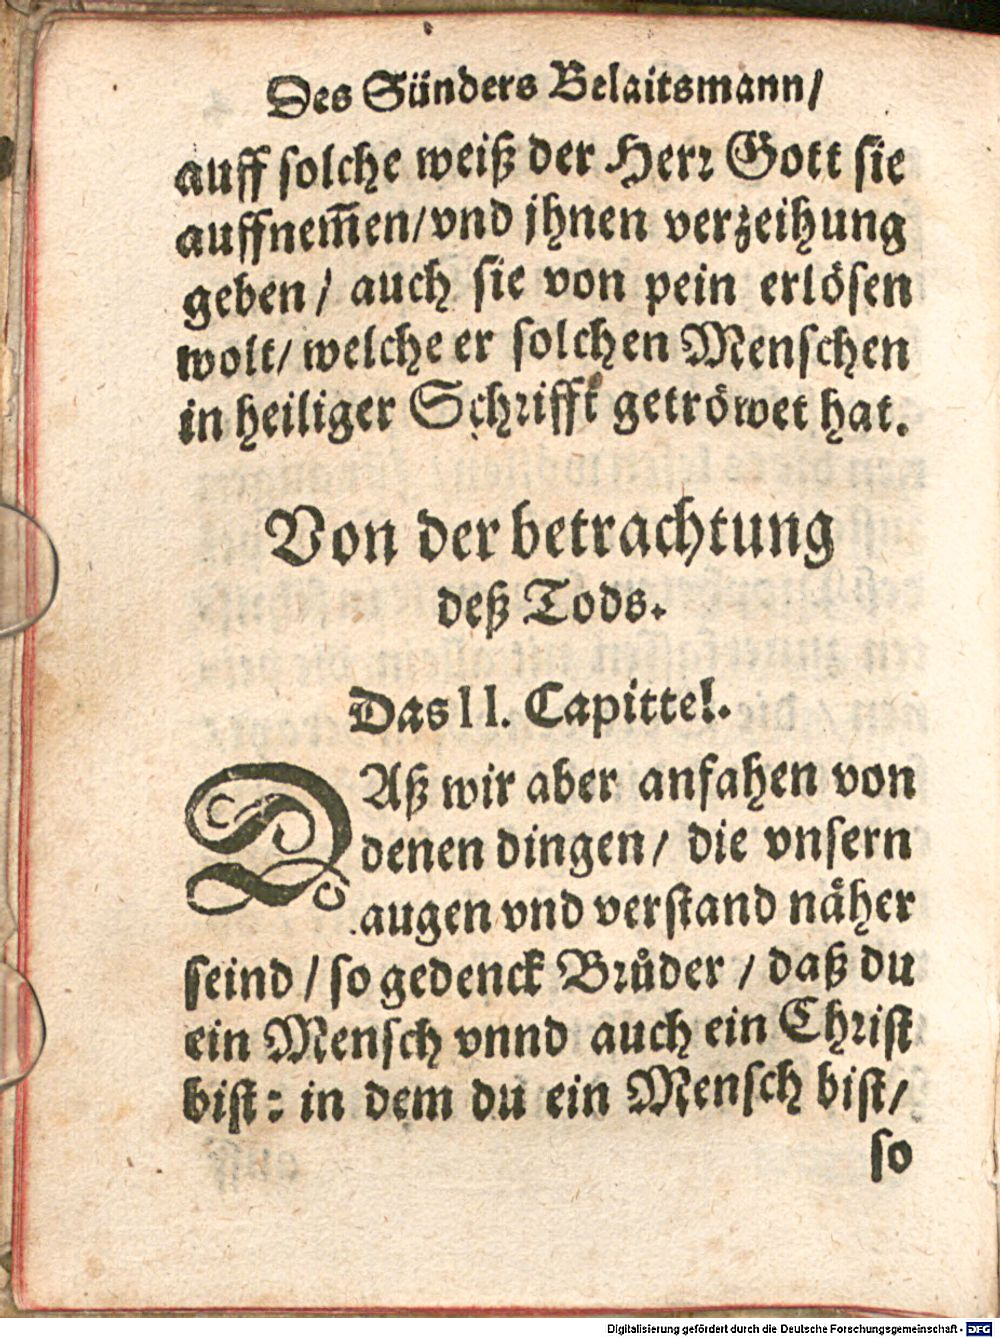 Des Sünders Belaitsmann/
auff solche weiß der Herr Gott sie
auffnem̃en/vnd jhnen verzeihung
geben/ auch sie von pein erlösen
wolt/ welche er solchen Menschen
in heiliger Schrifft getröwet hat.
Von der betrachtung
deß Tods.
Das II. Capittel.
DAß wir aber anfahen von
denen dingen/ die vnsern
augen vnd verstand näher
seind/ so gedenck Brůder/ daß du
ein Mensch vnnd auch ein Christ
bist: in dem du ein Mensch bist/
so
Digitalisierung gefördert durch die Deutsche Forschungsgemeinschaft - DFG